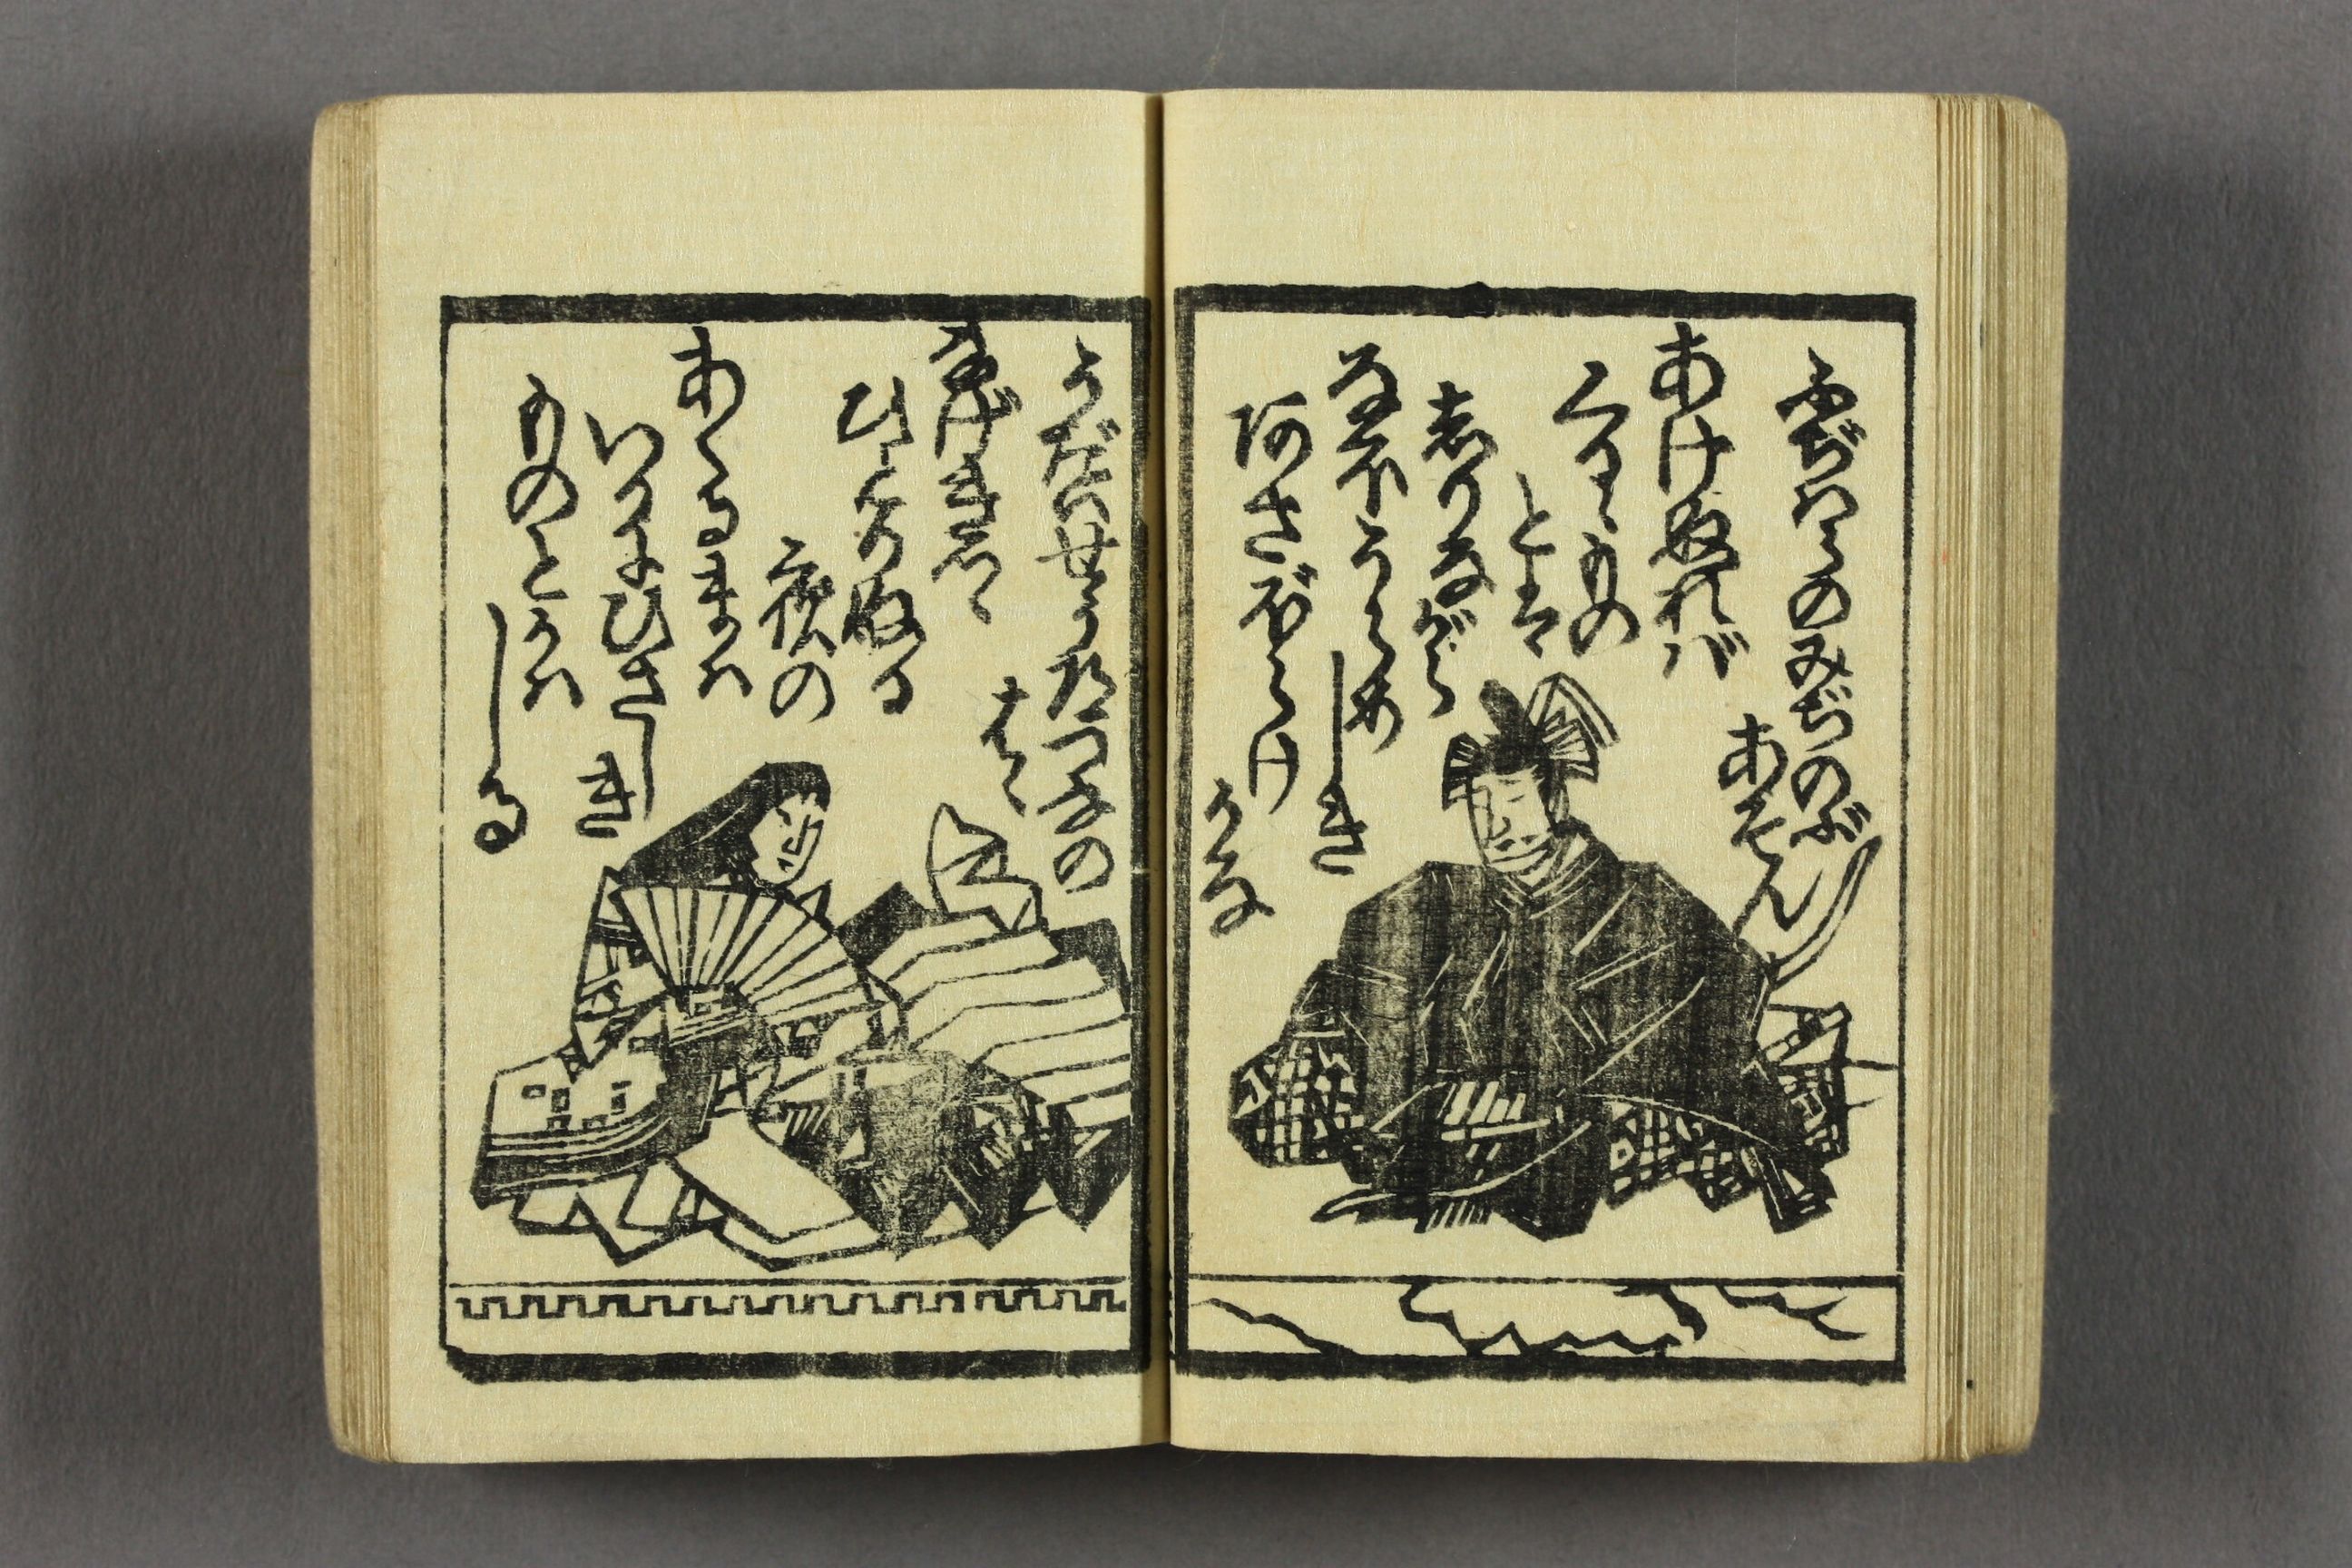 ふぢハらのみぢのぶ
あそん
あけぬれバ
くるゝもの
とは
志りながら
なほうらめ
しき
阿さぼらけ
かな
うだいせうみちつなの
はゝ
なげきつゝ
ひとりぬる
夜の
あくるまハ
いかにひさし
き
ものとかハ
しる